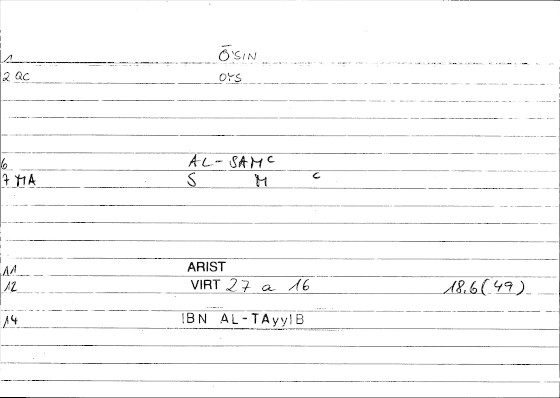 1 Ō'SIN
2 QC OYS
6 AL-SAMᶜ
7 MA S M ᶜ
11 ARIST
12 VIRT 27 a 16 18,6(49)
14 IBN AL-TAyyIB